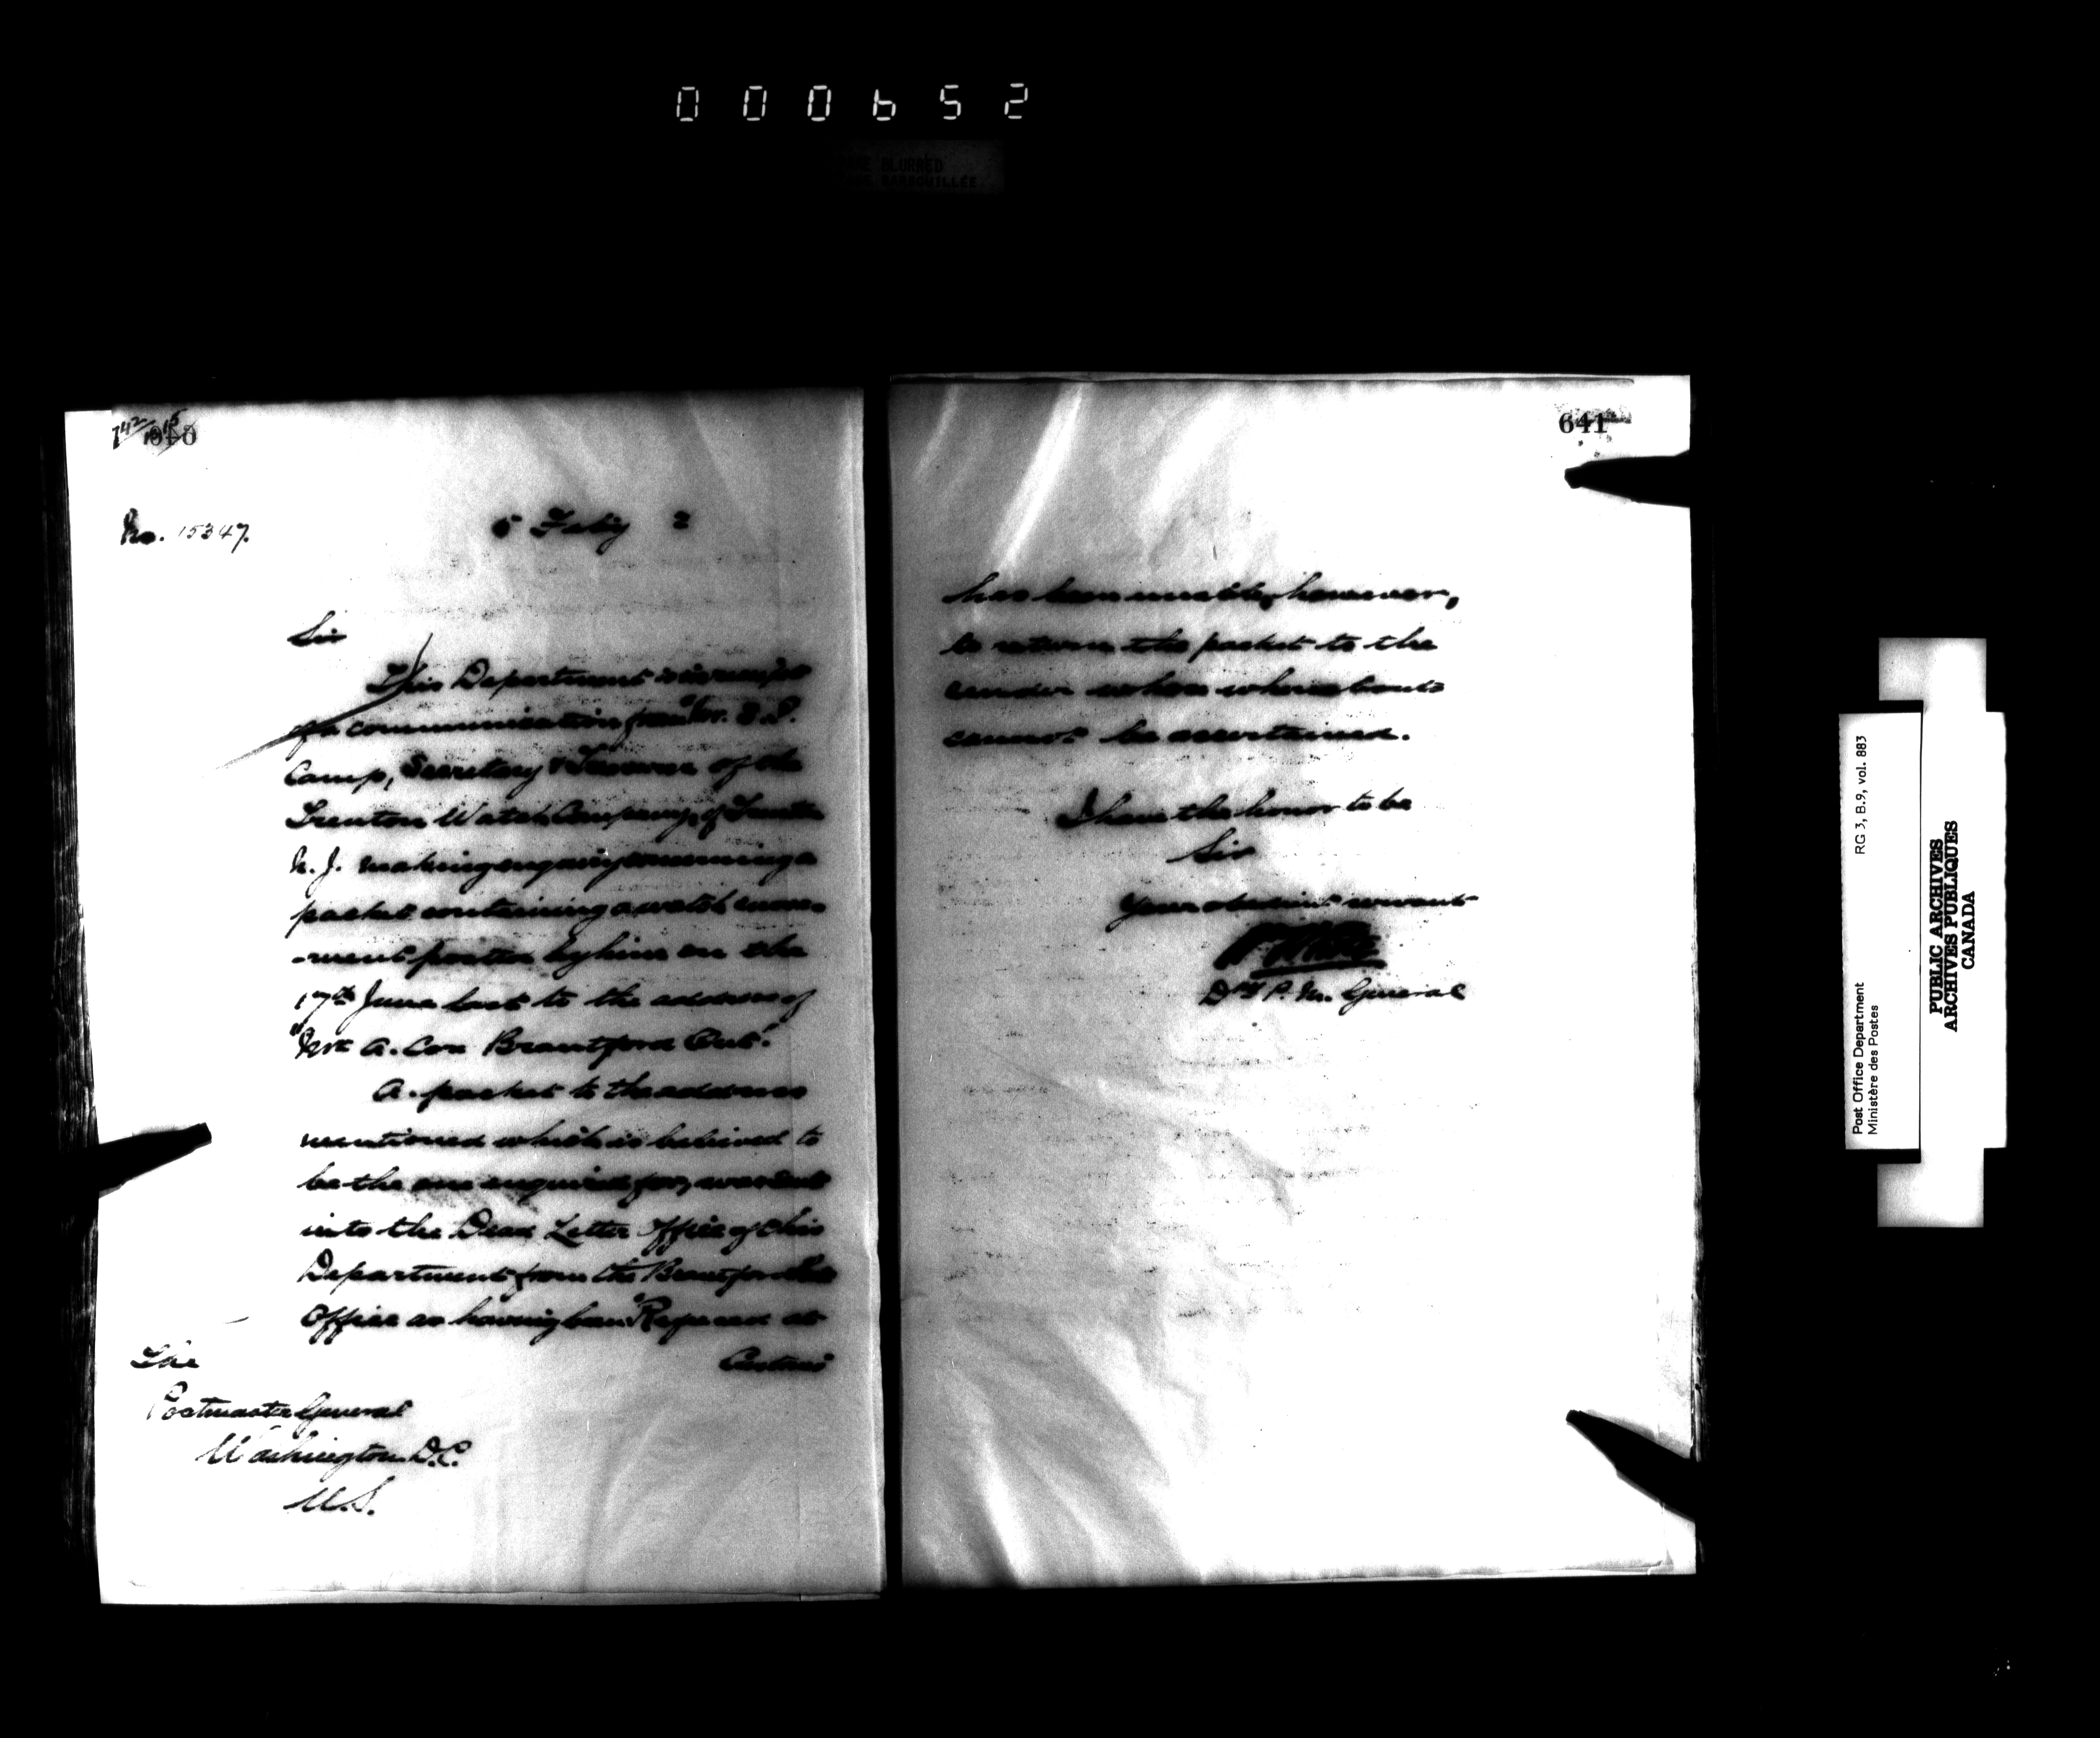 000652
BLURRED
BARBOUILLÉE
640
No. 15347.
5 Feby 2
Sir
This Department is in receipt
of a communication from Mr. E. S.
Camp, Secretary & Treasurer of the
Trenton Watch Company, of Trenton
N. J. making enquiry concerning a
packet containing a watch move-
-ment posted by him on the
17th June last to the address of
"Mr A. Cox Brantford Ont."
A packet to the address
mentioned which is believed to
be the one enquired for, was sent
into the Dead Letter Office of this
Department from the Brantford
Office as having been "Refused at
Customs
The
Postmaster General
Washington D.C.
U.S.
641
has been unable, however,
to return the packet to the
sender whose whereabouts
cannot be ascertained.
I have the honor to be
Sir
Your obedient servant
Dy P. M. General
RG 3, B.9, vol. 883
Post Office Department
Ministère des Postes
PUBLIC ARCHIVES
ARCHIVES PUBLIQUES
CANADA